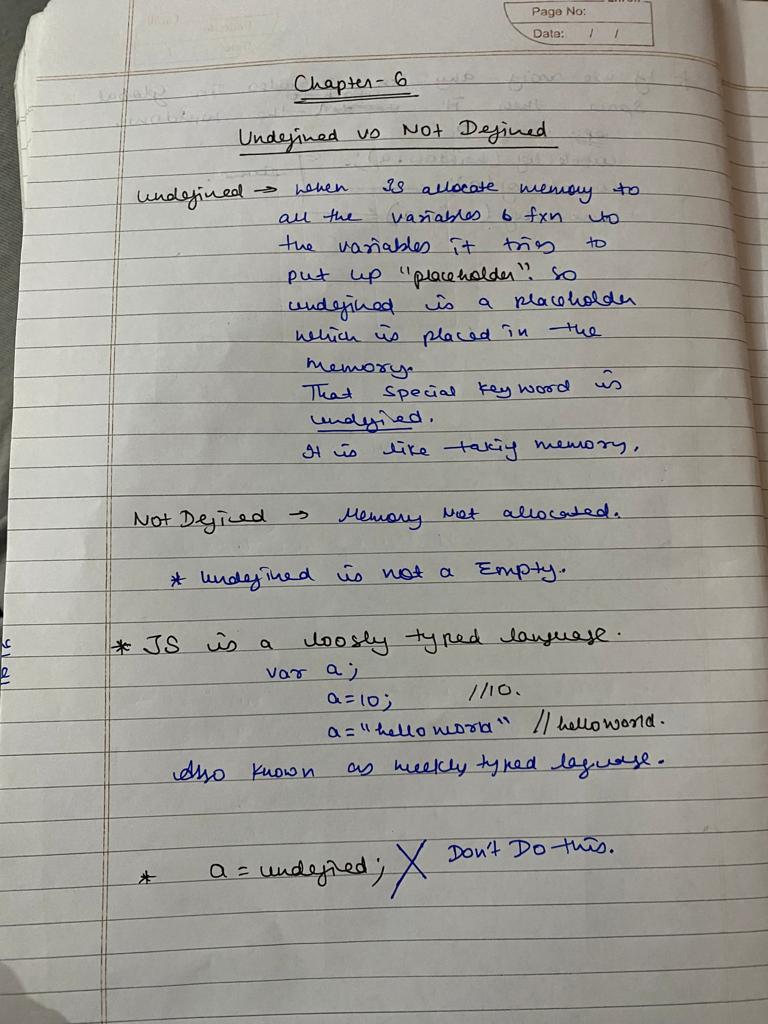 Page No:
Date: / /
Chapter-6
Undefined vs Not Defined
Undefined → when JS allocate memory to
all the variables & fxn to
the variables it tries to
put up "placeholder". So
undefined is a placeholder
which is placed in the
memory.
That special keyword is
undefined.
It is like taking memory.
Not Defined → Memory Not allocated.
* Undefined is not a Empty.
* JS is a loosly typed language.
var a;
a=10; //10.
a="hello world" //hello world.
Also known as weekly typed laguage.
* a = undefined; X Don't Do this.